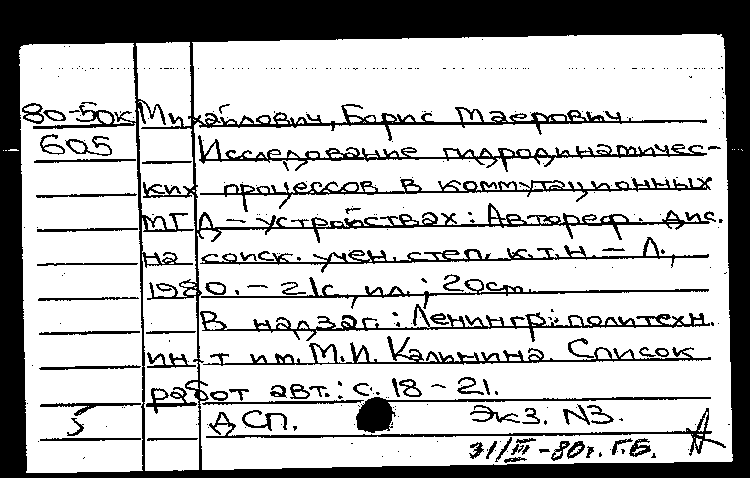 80-50к Михайлович, Борис Маерович.
605 Исследование гидродинамичес-
ких процессов в коммутационных
МГД - устройствах: Автореф. дис.
на соиск. учен. степ. к.т.н. - Л.,
1980. - 21с, ил.; 20см.
В надзаг.: Ленингр. политехн.
ин-т им. М.И. Калинина. Список
работ авт.: с. 18-21.
5 ДСП. Экз. N3.
31/III-80г. Г.Б.